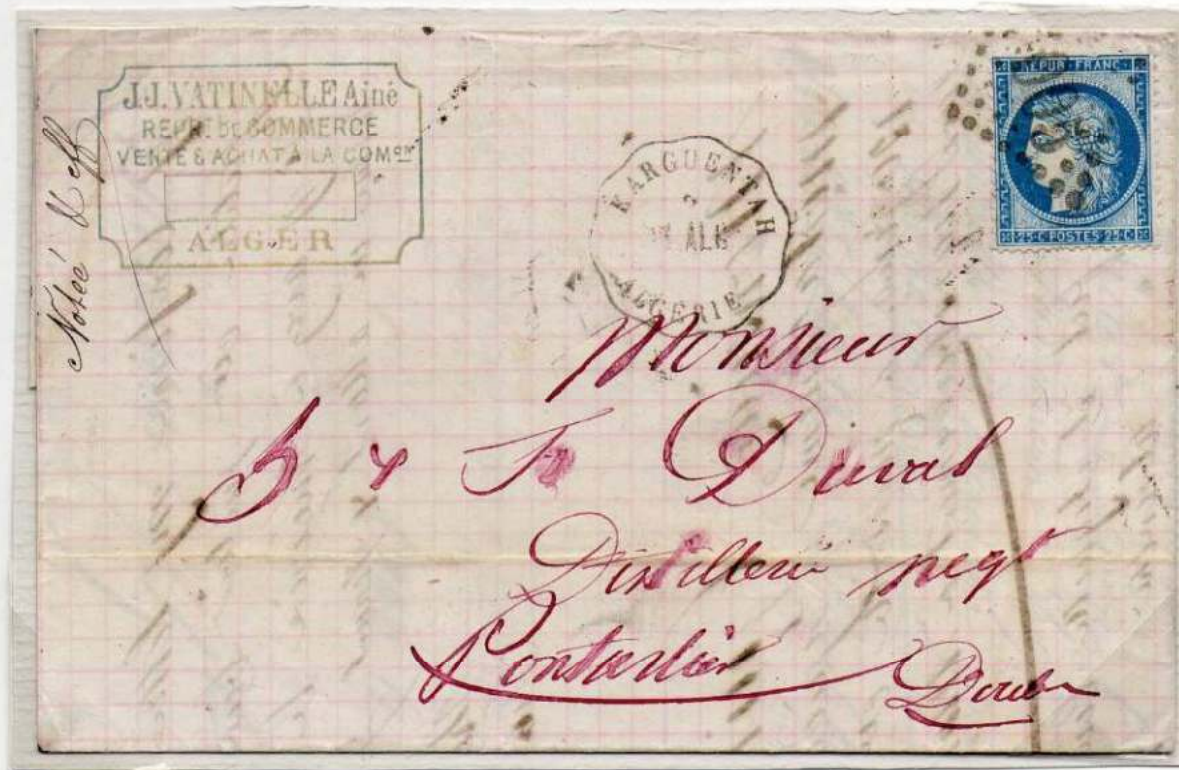 J.J. VATINELLE Ainé
REPR. DE COMMERCE
VENTE & ACHAT À LA COMon
ALGER
KARGUENTAH
ALG
ALGÉRIE
REPUB · FRANC ·
25 · C · POSTES · 25 · C
Monsieur
Duval
Distillerie negt
Pontarlier Doubs